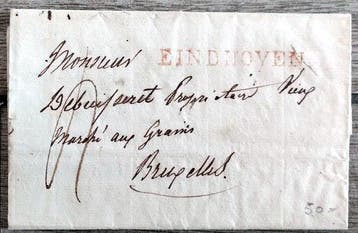 Monsieur
EINDHOVEN.
Propriétaire Vieux
Marché aux Grains
Bruxelles.
50-